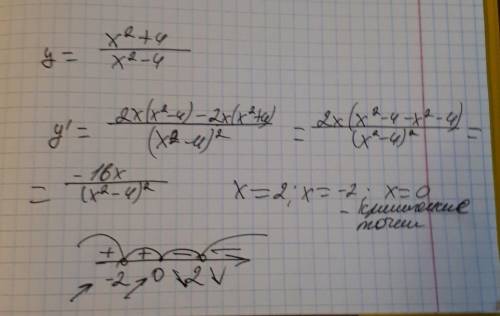 y = (x²+4)/(x²-4)
y' = (2x(x²-4)-2x(x²+4))/(x²-4)² = (2x(x²-4-x²-4))/(x²-4)² =
= (-16x)/(x²-4)² x=2; x=-2; x=0
- критические
точки
+ + - -
-2 0 2